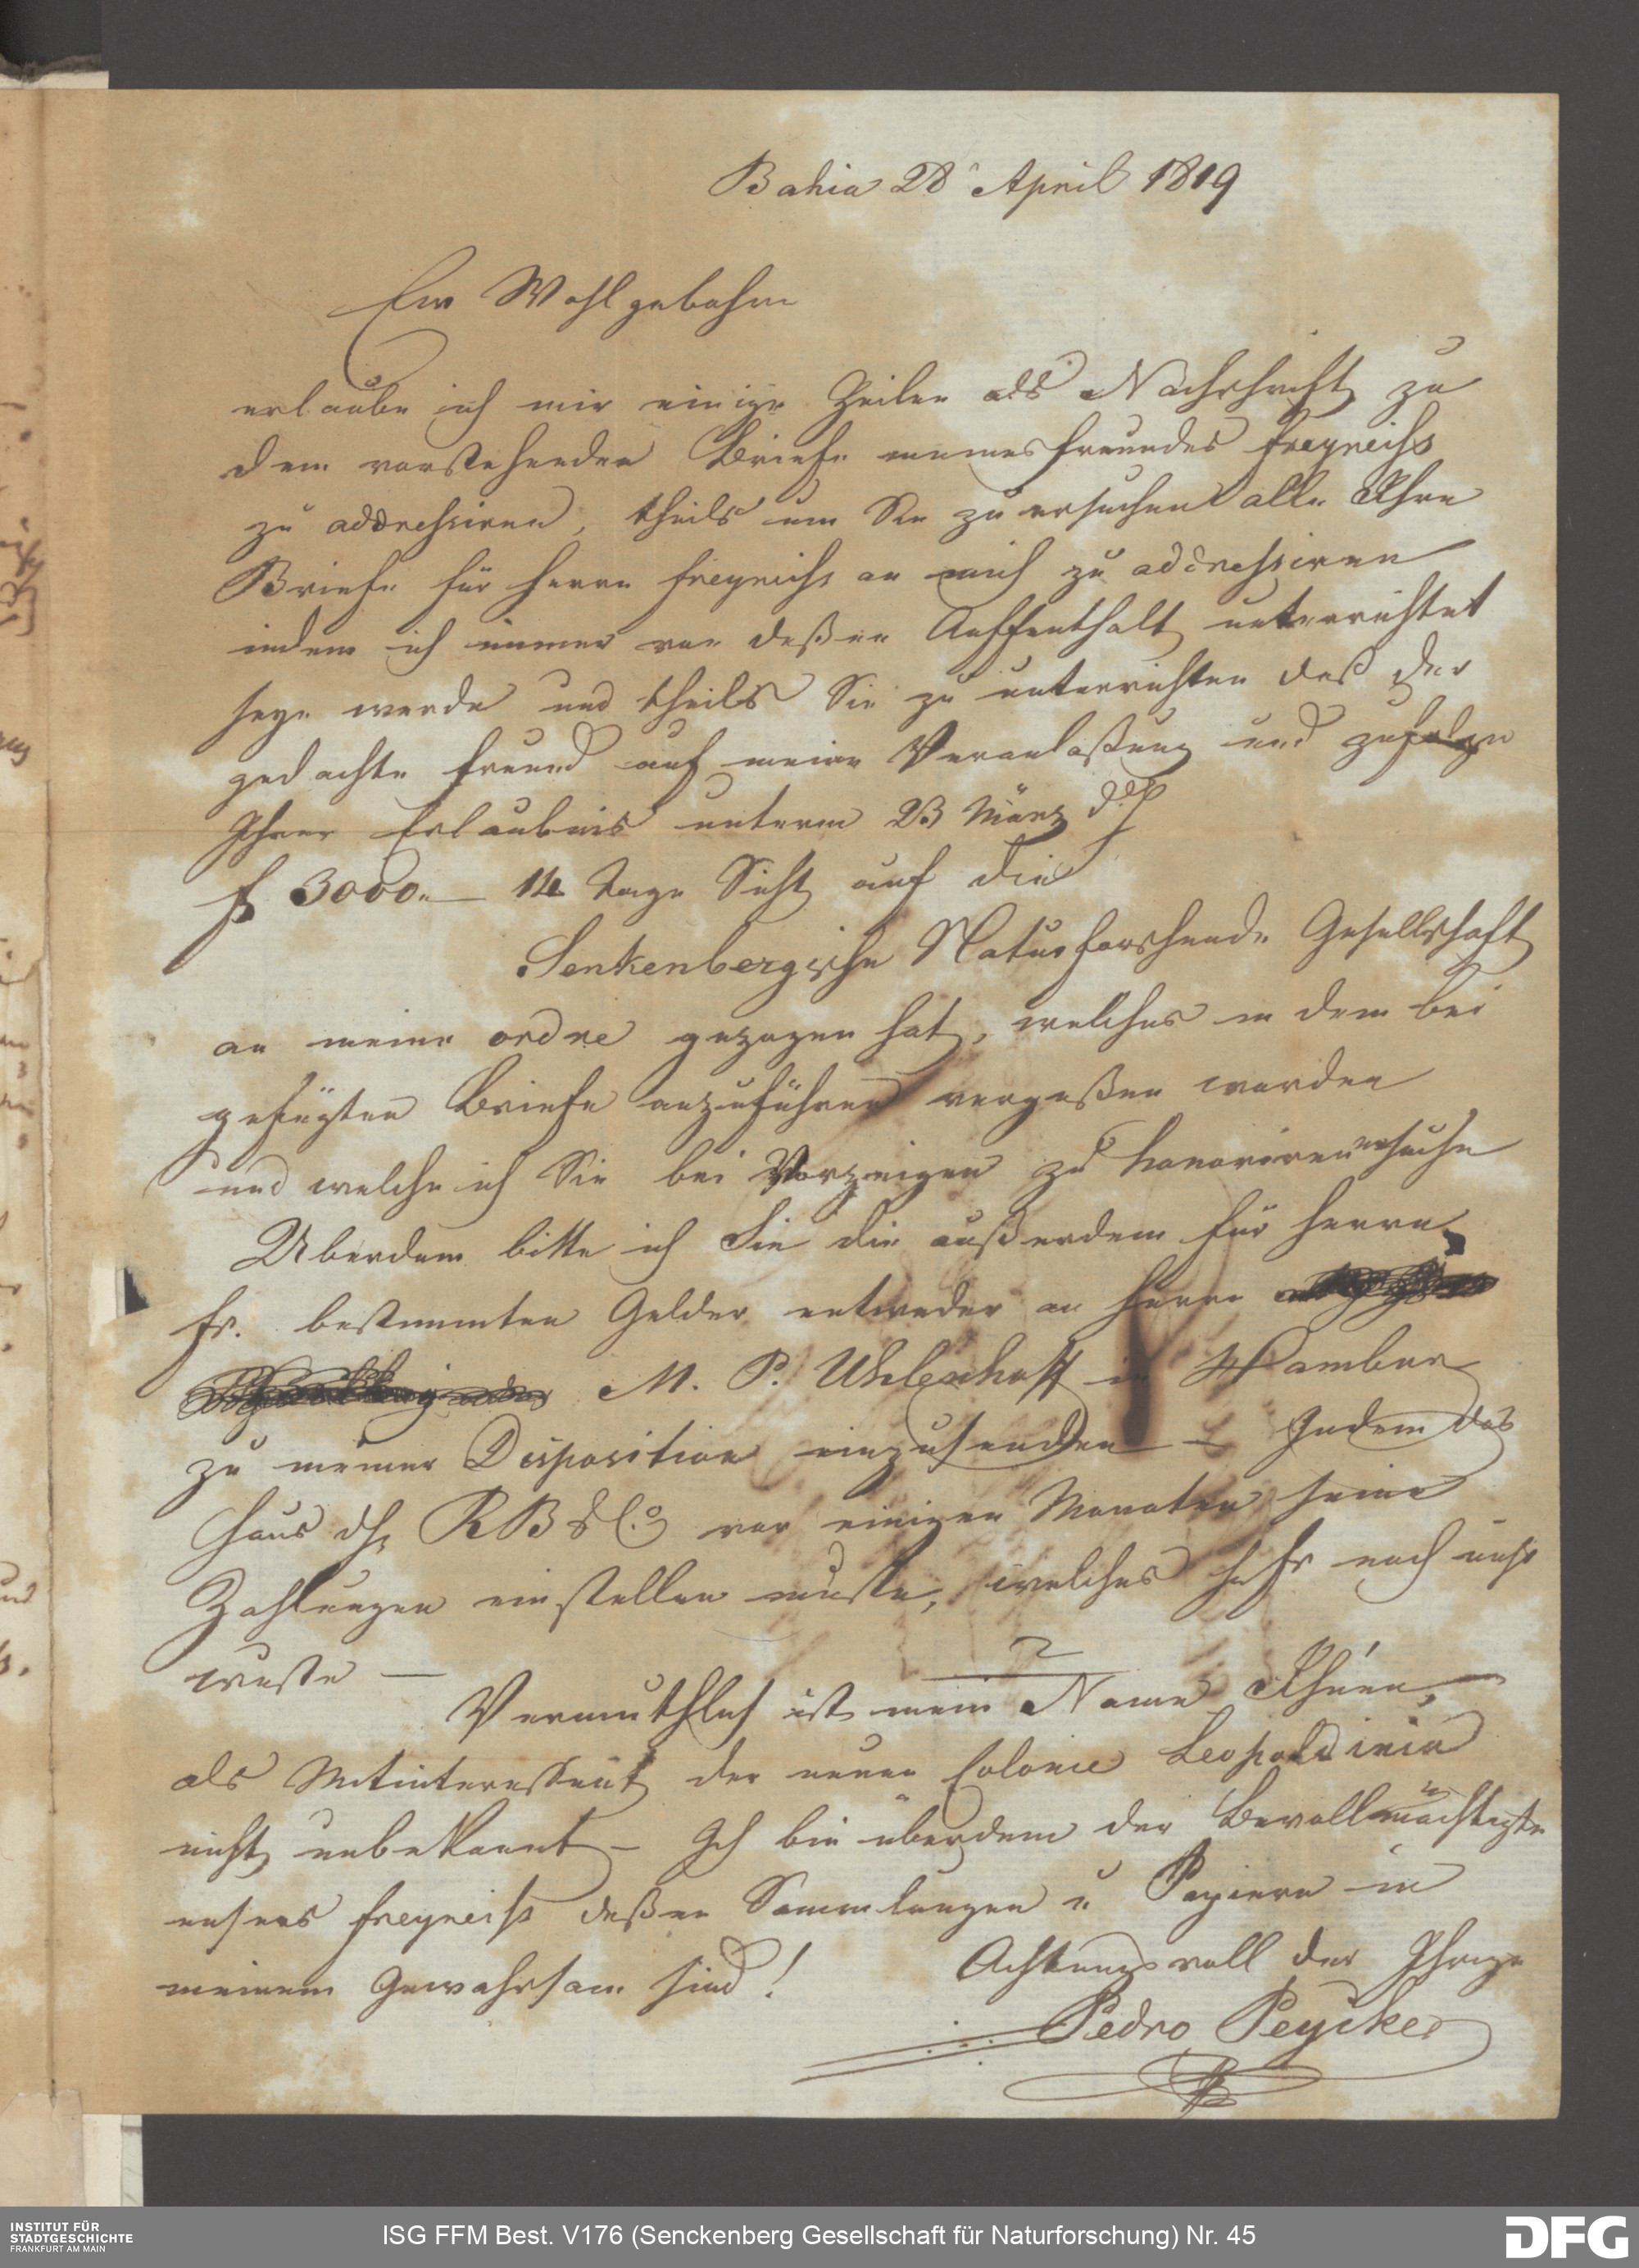 Bahia 28 April 1819
Ew Wohlgebohrn
erlaube ich mir einige Zeilen als Nachschrift zu
dem vorstehenden Briefe meines Freundes Freyreiss
zu addressiren, theils um Sie zu ersuchen alle Ihre
Briefe für Herrn Freyreiss an mich zu addressiren
indem ich immer von deßen Auffenthalt unterrichtet
seyn werde und theils Sie zu unterrichten daß der
gedachte Freund auf meine Veranlaßung und zufolge
Ihrer Erlaubnis unterm 23 März d. J.
f 3000.— 14 Tage Sicht auf die
Senkenbergische Naturforschende Gesellschaft
an meine ordre gezogen hat, welches in dem bei
gefügten Briefe anzuführen vergeßen worden
und welche ich Sie bei Vorzeigen zu honoriren ersuche
Uberdem bitte ich Sie die außerdem für Herrn
Fr. bestimmten Gelder entweder an Herrn
M. P. Uhlenhoff in Hamburg
zu meiner Disposition einzusenden — Indem das
Haus RB & Co vor einigen Monaten seine
Zahlungen einstellen muste, welches H Fr noch nicht
wuste —
Vermuthlich ist mein Name Ihnen,
als Mitinteressent der neuen Colonie Leopoldinia
nicht unbekannt — Ich bin überdem der Bevollmächtigte
unsers Freyreiss deßen Sammlungen u Papiere in
meinem Gewahrsam sind!
Achtungsvoll der Ihrige
Pedro Peycke
INSTITUT FÜR
STADTGESCHICHTE
FRANKFURT AM MAIN
ISG FFM Best. V176 (Senckenberg Gesellschaft für Naturforschung) Nr. 45
DFG